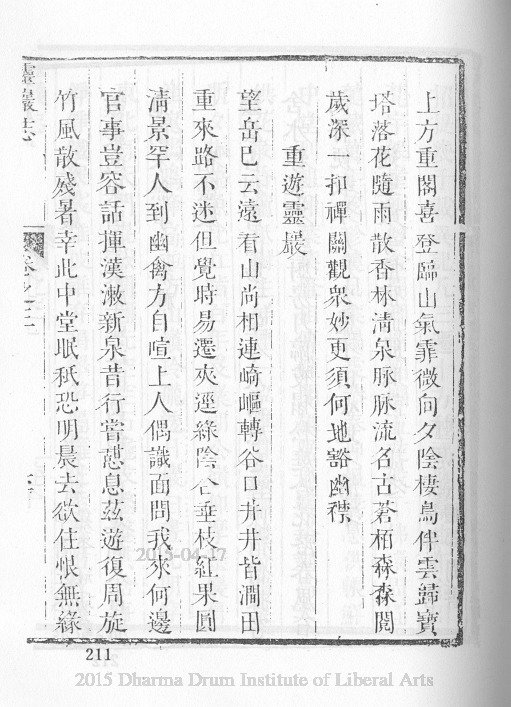 上方重閣喜登臨山氣霏微向夕陰棲鳥伴雲歸寶
塔落花隨雨散香林清泉脉脉流名古蒼栢森森閱
歲深一扣禪關觀衆妙更須何地豁幽襟
重遊靈巖
望岳已云遠看山尚相連崎嶇轉谷口井井皆澗田
重來路不迷但覺時易遷夾逕綠陰合垂枝紅果圓
淸景罕人到幽禽方自喧上人偶識面問我來何邊
官事豈容話揮漢漱新泉昔行嘗憇息茲遊復周旋
竹風散殘暑幸此中堂眠秖恐明晨去欲住恨無緣
靈巖志
卷之三
211
2015-04-17
2015 Dharma Drum Institute of Liberal Arts